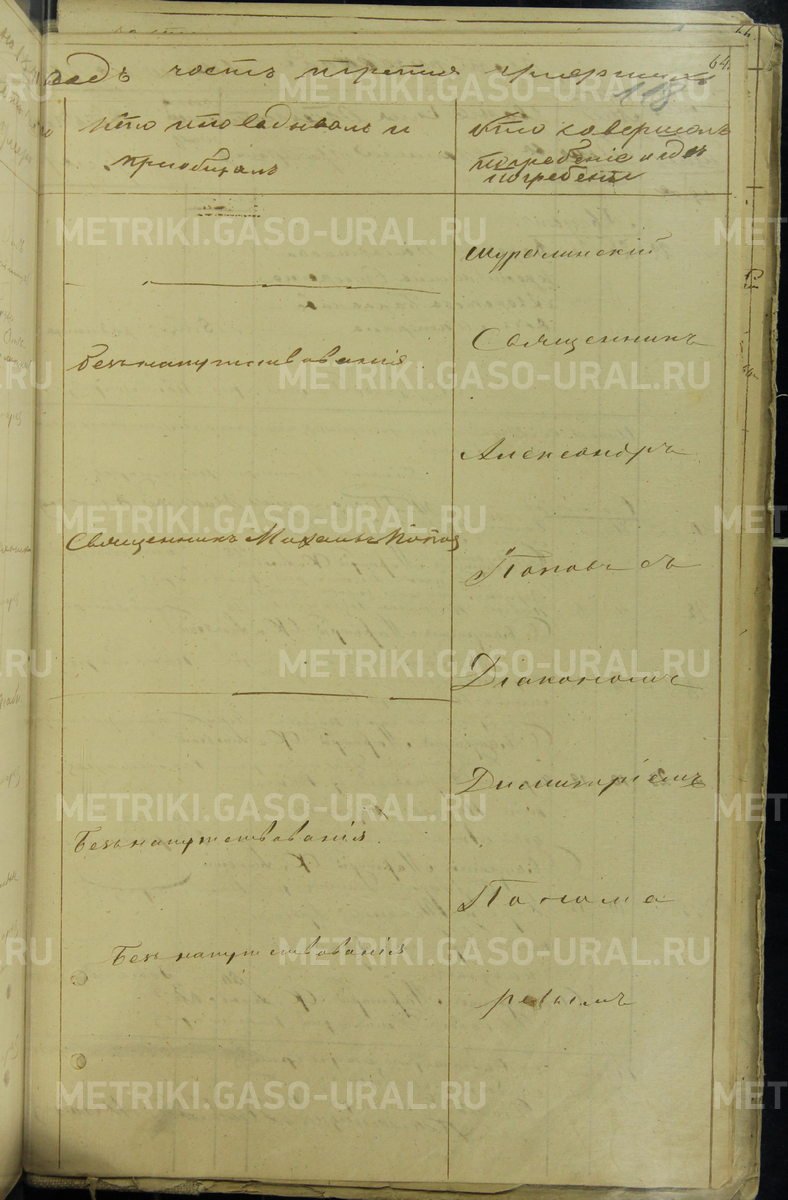 64.
118
годъ часть третия умершихъ
Кто исповедывалъ и
приобщалъ
Кто совершалъ
погребенiе и где
погребены
Шуралинскiй
Безъ напутствованiя
Священникъ
Александръ
Священникъ Михаилъ Попов
Поповъ съ
Дiакономъ
Димитрiемъ
Безъ напутствованiя
Понома
Безъ напутствованiя
ревымъ
METRIKI.GASO-URAL.RU